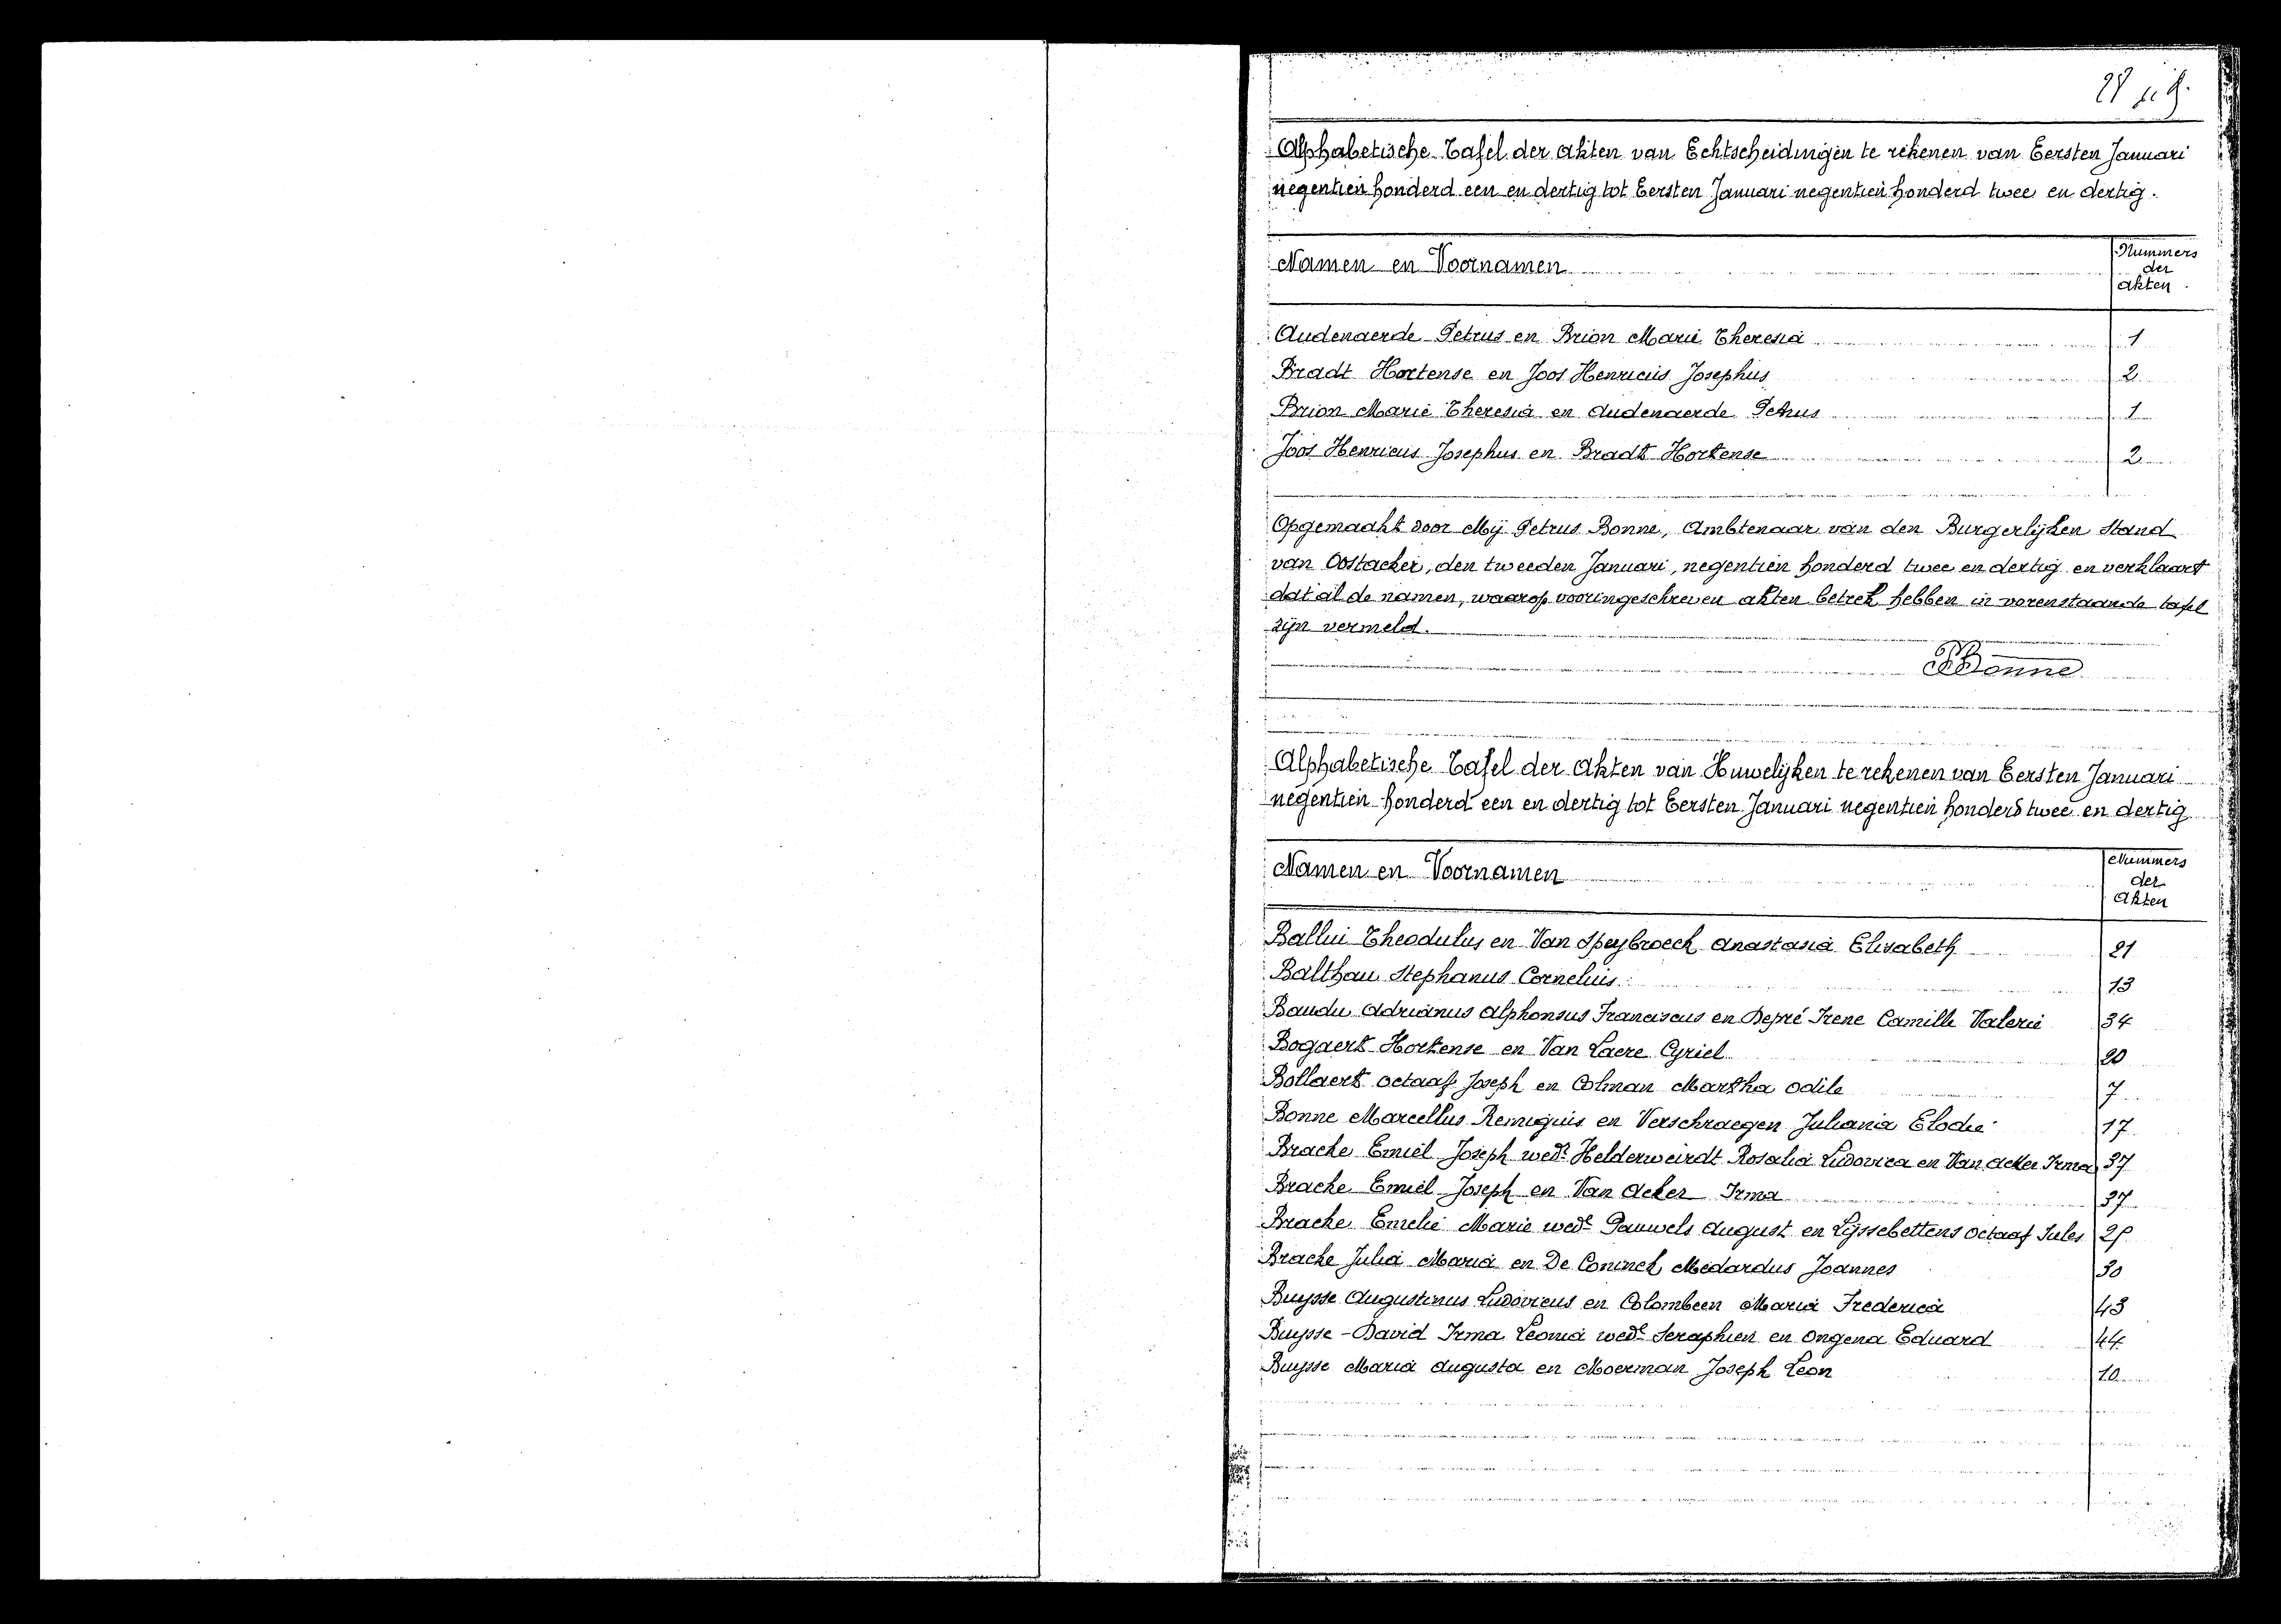 Alphabetische Tafel der akten van Echtscheidingen te rekenen van Eersten Januari
negentien honderd een en dertig tot Eersten Januari negentien honderd twee en dertig.
Namen en Voornamen Nummers der akten
Audenaerde Petrus en Brion Marie Theresia 1
Bradt Hortense en Joos Henricus Josephus 2
Brion Marie Theresia en Audenaerde Petrus 1
Joos Henricus Josephus en Bradt Hortense 2
Opgemaakt door Mij Petrus Bonne, Ambtenaar van den Burgerlijken Stand
van Oostacker, den tweeden Januari, negentien honderd twee en dertig en verklaart
dat al de namen, waarop vooringeschreven akten betrek hebben in vorenstaande tafel
zijn vermeld.
PBonne
Alphabetische Tafel der Akten van Huwelijken te rekenen van Eersten Januari
negentien honderd een en dertig tot Eersten Januari negentien honderd twee en dertig
Namen en Voornamen Nummers der Akten
Ballui Theodulus en Van Speybroeck Anastasia Elisabeth 21
Balthau Stephanus Cornelius 13
Baudu Adrianus Alphonsus Franciscus en Depré Irene Camille Valerie 34
Bogaert Hortense en Van Laere Cyriel 20
Bollaert Octaaf Joseph en Colman Martha Odile 7
Bonne Marcellus Remigius en Verschraegen Juliania Elodie 17
Bracke Emiel Joseph wedr Helderweirdt Rosalia Ludovica en Van Acker Irma 37
Bracke Emiel Joseph en Van Acker Irma 37
Bracke Emelie Marie wede Pauwels August en Lijssebettens Octaaf Jules
Bracke Julia Maria en De Coninck Medardus Joannes 30
Buysse Augustinus Ludovicus en Colombeen Maria Frederica 43
Buysse - David Irma Leonia wede Seraphien en Ongena Eduard 44
Buysse Maria Augusta en Moerman Joseph Leon 10